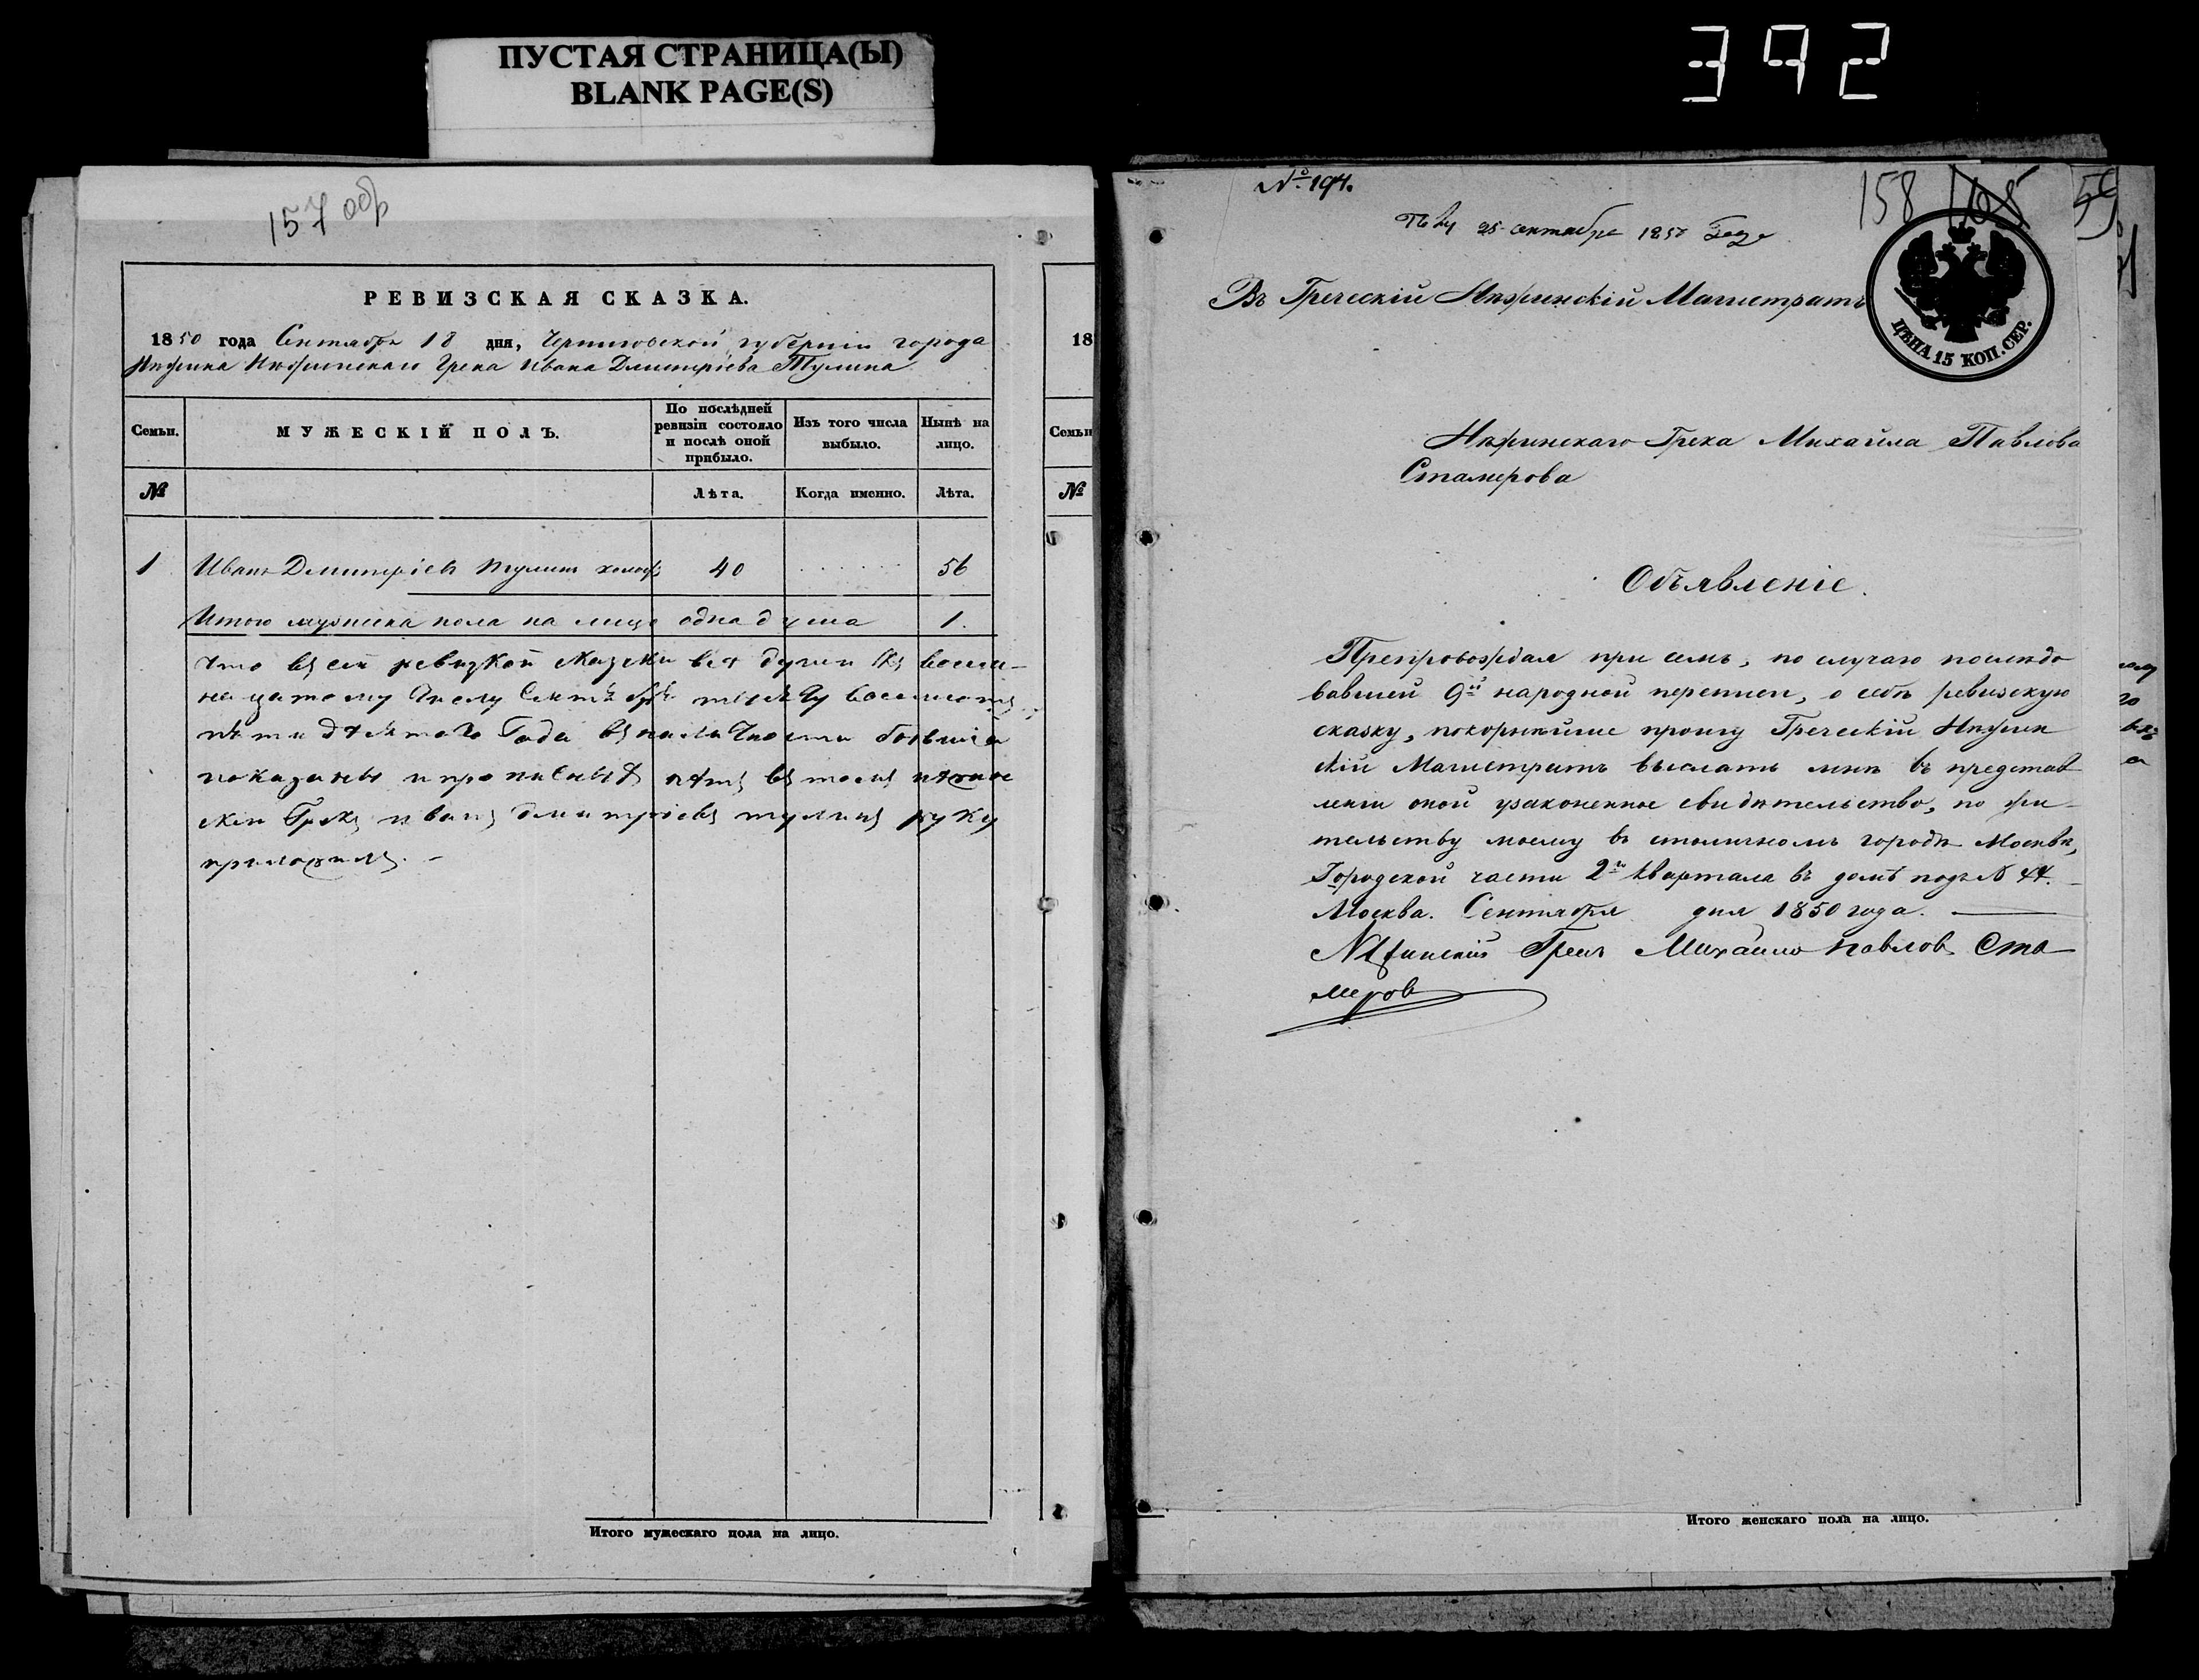 ПУСТАЯ СТРАНИЦА(Ы)
BLANK PAGE(S)
392
157 обр
РЕВИЗСКАЯ СКАЗКА.
1850 года Сентября 18 дня, Черниговской губерніи города
Нѣжина Нѣжинскаго Грека Ивана Дмитріева Тулина
Семьи.
МУЖЕСКІЙ ПОЛЪ.
По послѣдней ревизіи состояло и послѣ оной прибыло.
Изъ того числа выбыло.
Нынѣ на лицо.
№
Лѣта.
Когда именно.
Лѣта.
1 Иванъ Дмитріевъ Тулинъ холос 40 . . . . . . 56
Итого мужеска пола на лицо одна душа 1.
что въ сей ревизкой сказки всѣ души къ восем-
надцатому числу Сентября тысячу восемсотъ
пятидесятого Года въ наличности бывшіе
показаны и прописныхъ нѣтъ въ томъ нѣжин
скіи Грекъ иванъ дмитріевъ тулинъ руку
приложилъ. -
18
Семьи
№
Итого мужескаго пола на лицо.
№ 194.
25 сентября 1850 Года
158 108 59
ЦѢНА 15 КОП. СЕР.
Въ Греческій Нѣжинскій Магистратъ
Нѣжинскаго Грека Михайла Павлова
Стамерова
Объявленіе.
Препровождая при семъ, по случаю послѣдо
вавшей 9й народной переписи, о себѣ ревизскую
сказку, покорнѣйше прошу Греческій Нѣжин
скій Магистратъ выслать мнѣ въ представ
леніи оной узаконенное свидѣтельство, по жи-
тельству моему въ столичномъ городѣ Москвѣ,
Городской части 2го квартала въ домѣ подъ N 44.
Москва. Сентября дня 1850 года.
Нѣжинскій Грекъ Михайло Павловъ Ста
меров
Итого женскаго пола на лицо.